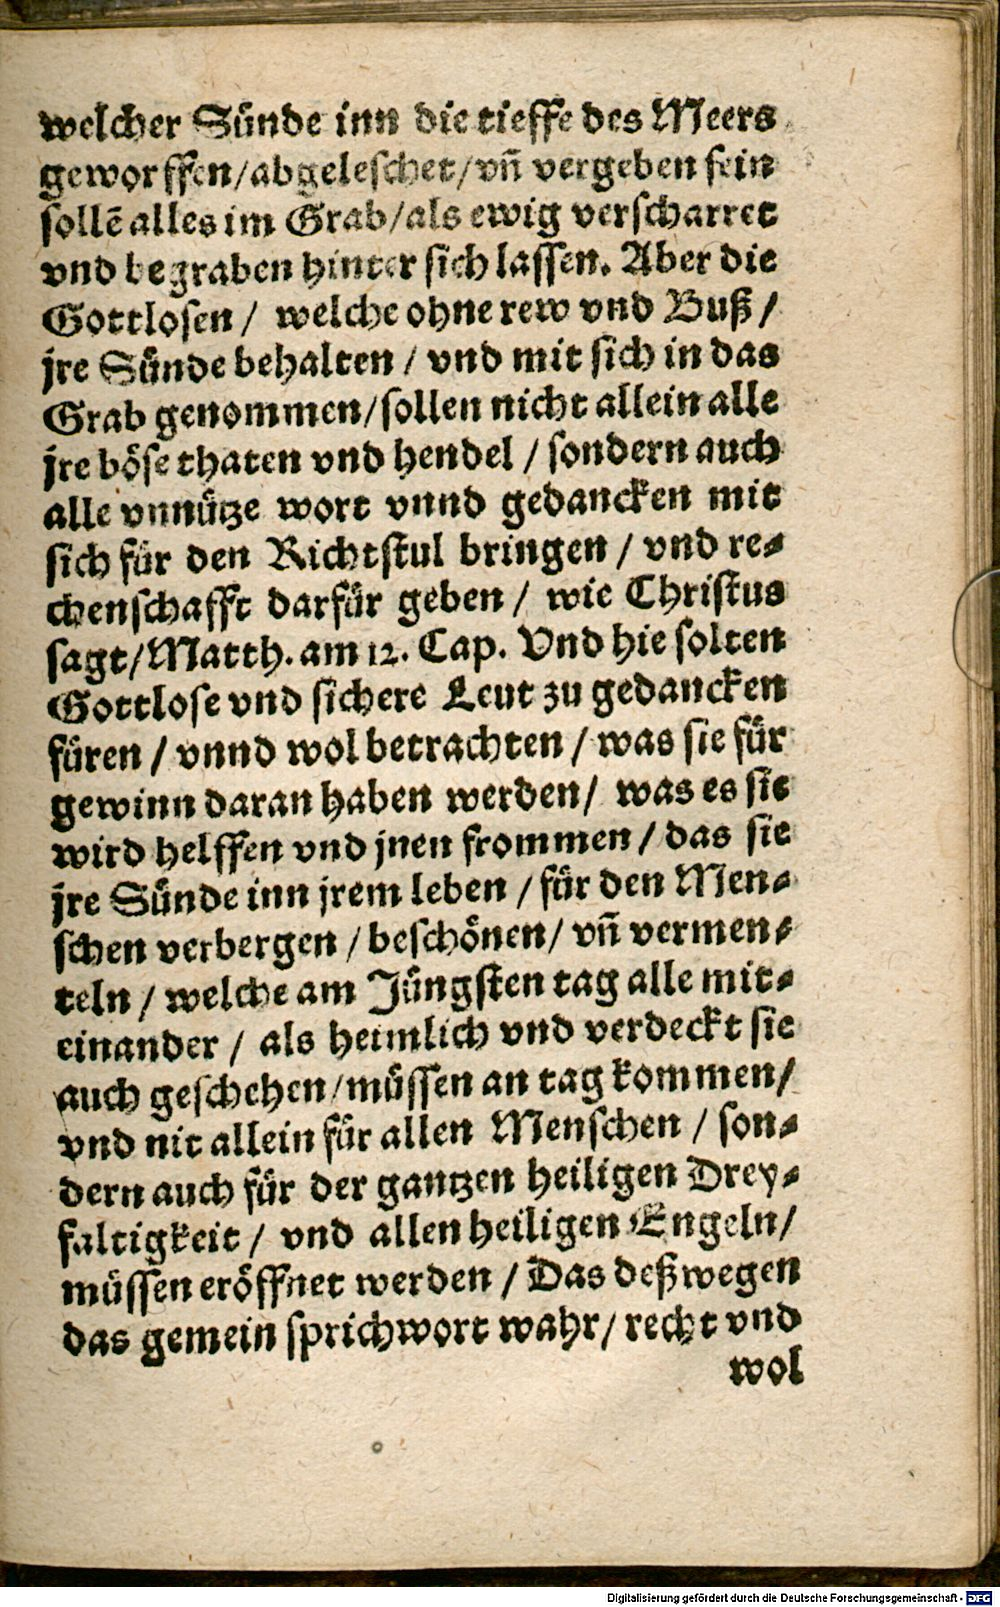 welcher Sünde inn die tieffe des Meers
geworffen/abgeleschet/vñ vergeben sein
sollē alles im Grab/als ewig verscharret
vnd begraben hinter sich lassen. Aber die
Gottlosen / welche ohne rew vnd Buß /
jre Sünde behalten / vnd mit sich in das
Grab genommen/sollen nicht allein alle
jre böse thaten vnd hendel / sondern auch
alle vnnütze wort vnnd gedancken mit
sich für den Richtstul bringen / vnd re-
chenschafft darfür geben / wie Christus
sagt/Matth. am 12. Cap. Vnd hie solten
Gottlose vnd sichere Leut zu gedancken
füren / vnnd wol betrachten / was sie für
gewinn daran haben werden/ was es sie
wird helffen vnd jnen frommen / das sie
jre Sünde inn jrem leben / für den Men-
schen verbergen / beschönen/ vñ vermen-
teln / welche am Jüngsten tag alle mit-
einander / als heimlich vnd verdeckt sie
auch geschehen/müssen an tag kommen/
vnd nit allein für allen Menschen / son-
dern auch für der gantzen heiligen Drey-
faltigkeit / vnd allen heiligen Engeln/
müssen eröffnet werden / Das deßwegen
das gemein sprichwort wahr/ recht vnd
wol
Digitalisierung gefördert durch die Deutsche Forschungsgemeinschaft - DFG